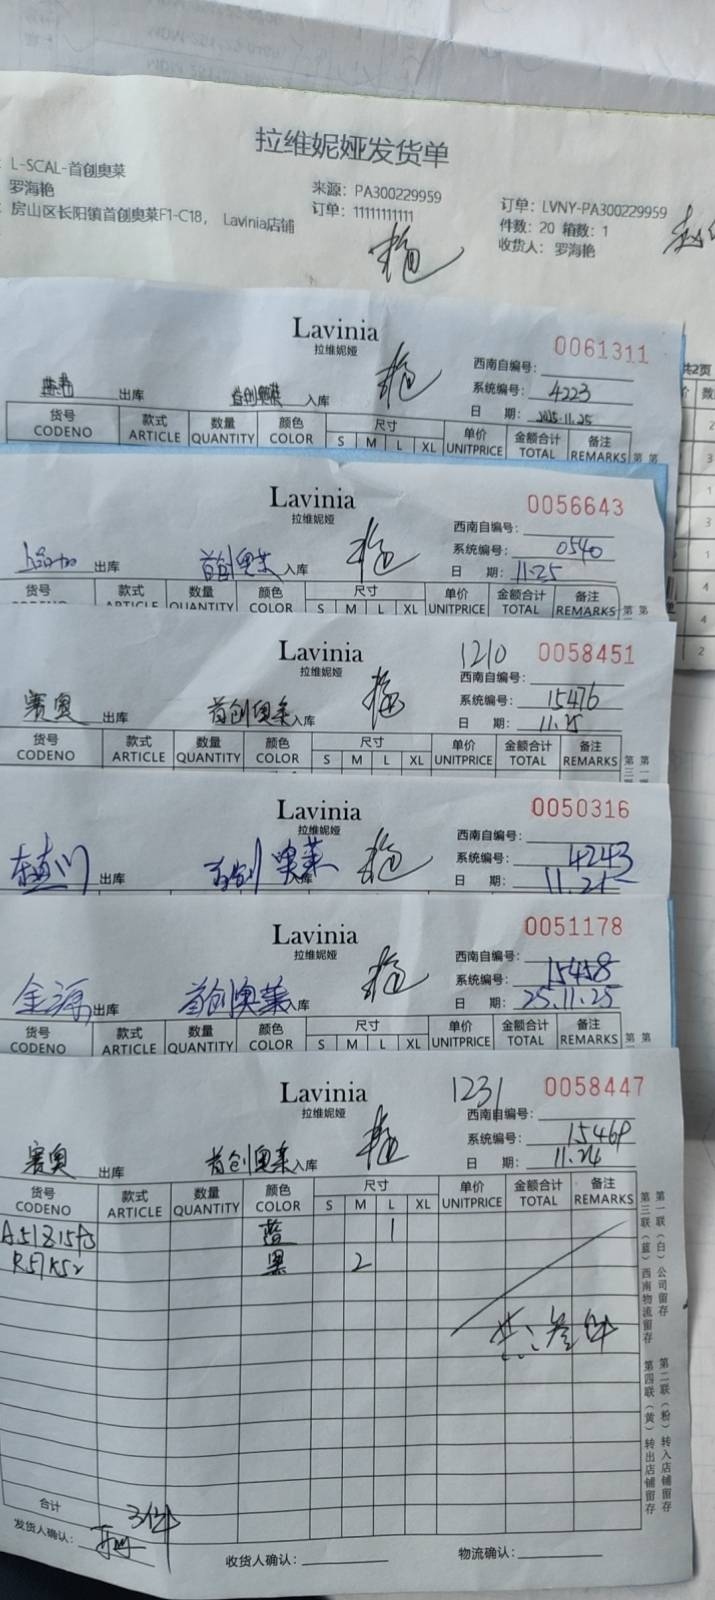 拉维妮娅发货单
: L-SCAL-首创奥莱
罗海艳
: 房山区长阳镇首创奥莱F1-C18， Lavinia店铺
来源：PA300229959
订单：11111111111
订单：LVNY-PA300229959
件数：20 箱数：1
收货人：罗海艳
共2页
Lavinia
拉维妮娅
0061311
西南自编号：
系统编号：4223
日 期：2025.11.25
出库 首创奥莱 入库
货号 款式 数量 颜色 尺寸 单价 金额合计 备注
CODENO ARTICLE QUANTITY COLOR S M L XL UNITPRICE TOTAL REMARKS
Lavinia
拉维妮娅
0056643
西南自编号：
系统编号：0540
日 期：11.25
出库 首创奥莱 入库
货号 款式 数量 颜色 尺寸 单价 金额合计 备注
CODENO ARTICLE QUANTITY COLOR S M L XL UNITPRICE TOTAL REMARKS
Lavinia
拉维妮娅
1210 0058451
西南自编号：
系统编号：15476
日 期：11.25
赛奥 出库 首创奥莱 入库
货号 款式 数量 颜色 尺寸 单价 金额合计 备注
CODENO ARTICLE QUANTITY COLOR S M L XL UNITPRICE TOTAL REMARKS
Lavinia
拉维妮娅
0050316
西南自编号：
系统编号：4243
日 期：11.25
出库 首创奥莱 入库
Lavinia
拉维妮娅
0051178
西南自编号：
系统编号：15458
日 期：25.11.25
金源 出库 首创奥莱 入库
货号 款式 数量 颜色 尺寸 单价 金额合计 备注
CODENO ARTICLE QUANTITY COLOR S M L XL UNITPRICE TOTAL REMARKS
Lavinia
拉维妮娅
1231 0058447
西南自编号：
系统编号：15469
日 期：11.24
赛奥 出库 首创奥莱 入库
货号 款式 数量 颜色 尺寸 单价 金额合计 备注
CODENO ARTICLE QUANTITY COLOR S M L XL UNITPRICE TOTAL REMARKS
蓝 1
R57K52 黑 2
共：叁件
合计 3件
发货人确认： 收货人确认： 物流确认：
第一联（白）公司留存
第二联（粉）转入店铺留存
第三联（蓝）西南物流留存
第四联（黄）转出店铺留存